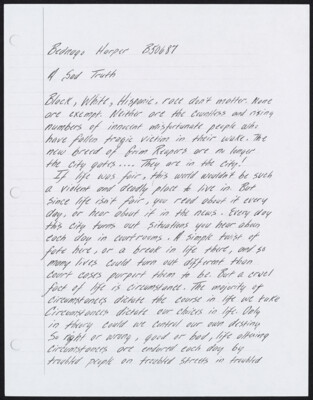 Bednago Harper B50687
A Sad Truth
Black, White, Hispanic, race don't matter. None
are exempt. Neither are the countless and rising
numbers of innocent misfortunate people who
have fallen tragic victim in their wake. The
new breed of Grim Reapers are no longer
the city gates.... They are in the city!
If life was fair, this world wouldn't be such
a violent and deadly place to live in. But
since life isn't fair, you read about it every
day, or hear about it in the news. Every day
this city turns out situations you hear about
each day in courtrooms. A simple twist of
fate here, or a break in life there, and so
many lives could turn out different than
court cases purport them to be. But a cruel
fact of life is circumstance. The majority of
circumstances dictate the course in life we take
Circumstances dictate our choices in life. Only
in theory could we control our own destiny.
So right or wrong, good or bad, life altering
circumstances are endured each day by
troubled people on troubled streets in troubled